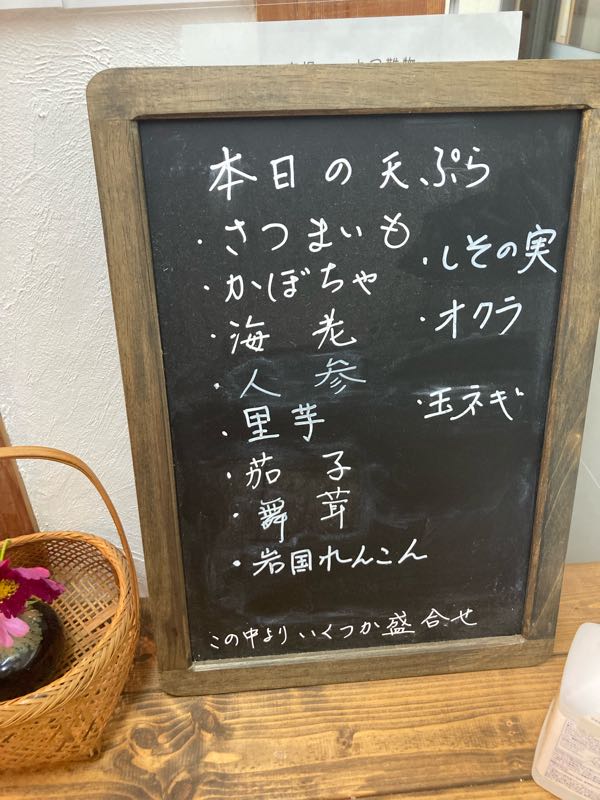 本日の天ぷら
・さつまいも
・かぼちゃ
・海老
・人参
・里芋
・茄子
・舞茸
・岩国れんこん
・しその実
・オクラ
・玉ネギ
この中よりいくつか盛合せ